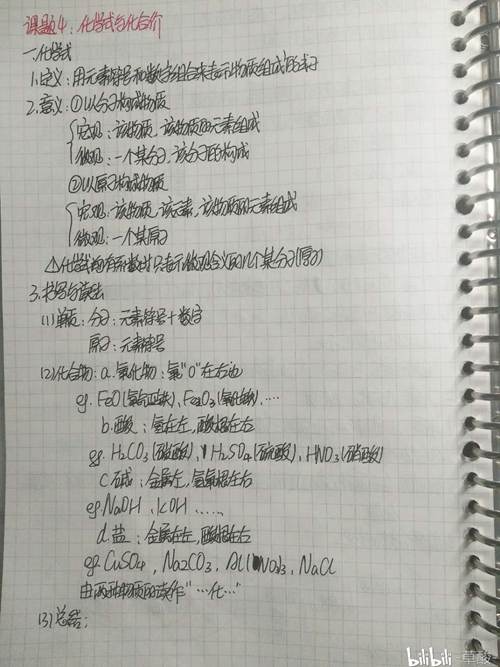 课题4：化学式与化合价
一.化学式
1.定义：用元素符号和数字组合来表示物质组成的式子
2.意义：①以分子构成物质
宏观：该物质，该物质的元素组成
微观：一个某分子，该分子的构成
②以原子构成物质
宏观：该物质，该元素，该物质的元素组成
微观：一个某原子
△化学式前有系数时只表示微观含义即几个某分子(原子)
3.书写与读法
(1)单质：分子：元素符号+数字
原子：元素符号
(2)化合物：a.氧化物：氧"O"在右边
eg.FeO(氧化亚铁)、Fe2O3(氧化铁)....
b.酸：氢在左，酸根在右
eg.H2CO3(碳酸)、H2SO4(硫酸)、HNO3(硝酸)
c.碱：金属左，氢氧根在右
eg.NaOH、KOH......
d.盐：金属在左，酸根在右
eg.CuSO4、Na2CO3、Al(NO3)3、NaCl
由两种物质的读作"…化…"
(3)总结：
bilibili 草酸